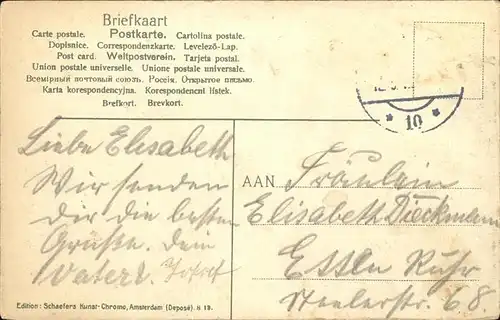 Briefkaart
Carte postale. Postkarte. Cartolina postale.
Dopisnice. Correspondenzkarte. Levelező-Lap.
Post card. Weltpostverein. Tarjeta postal.
Union postale universelle. Unione postale universale.
Всемірный почтовый союзъ. Россія. Открытое письмо.
Karta korespondencyjna. Korespondencni listek.
Brefkort. Brevkort.
* 10 *
Liebe Elisabeth
Wir senden
Dir die besten
Grüße. Dein
Vater
AAN Fräulein
Elisabeth Dieckmann
Essen Ruhr
Steelerstr. 68.
Edition: Schaefers Kunst-Chromo, Amsterdam (Deposé). H 19.